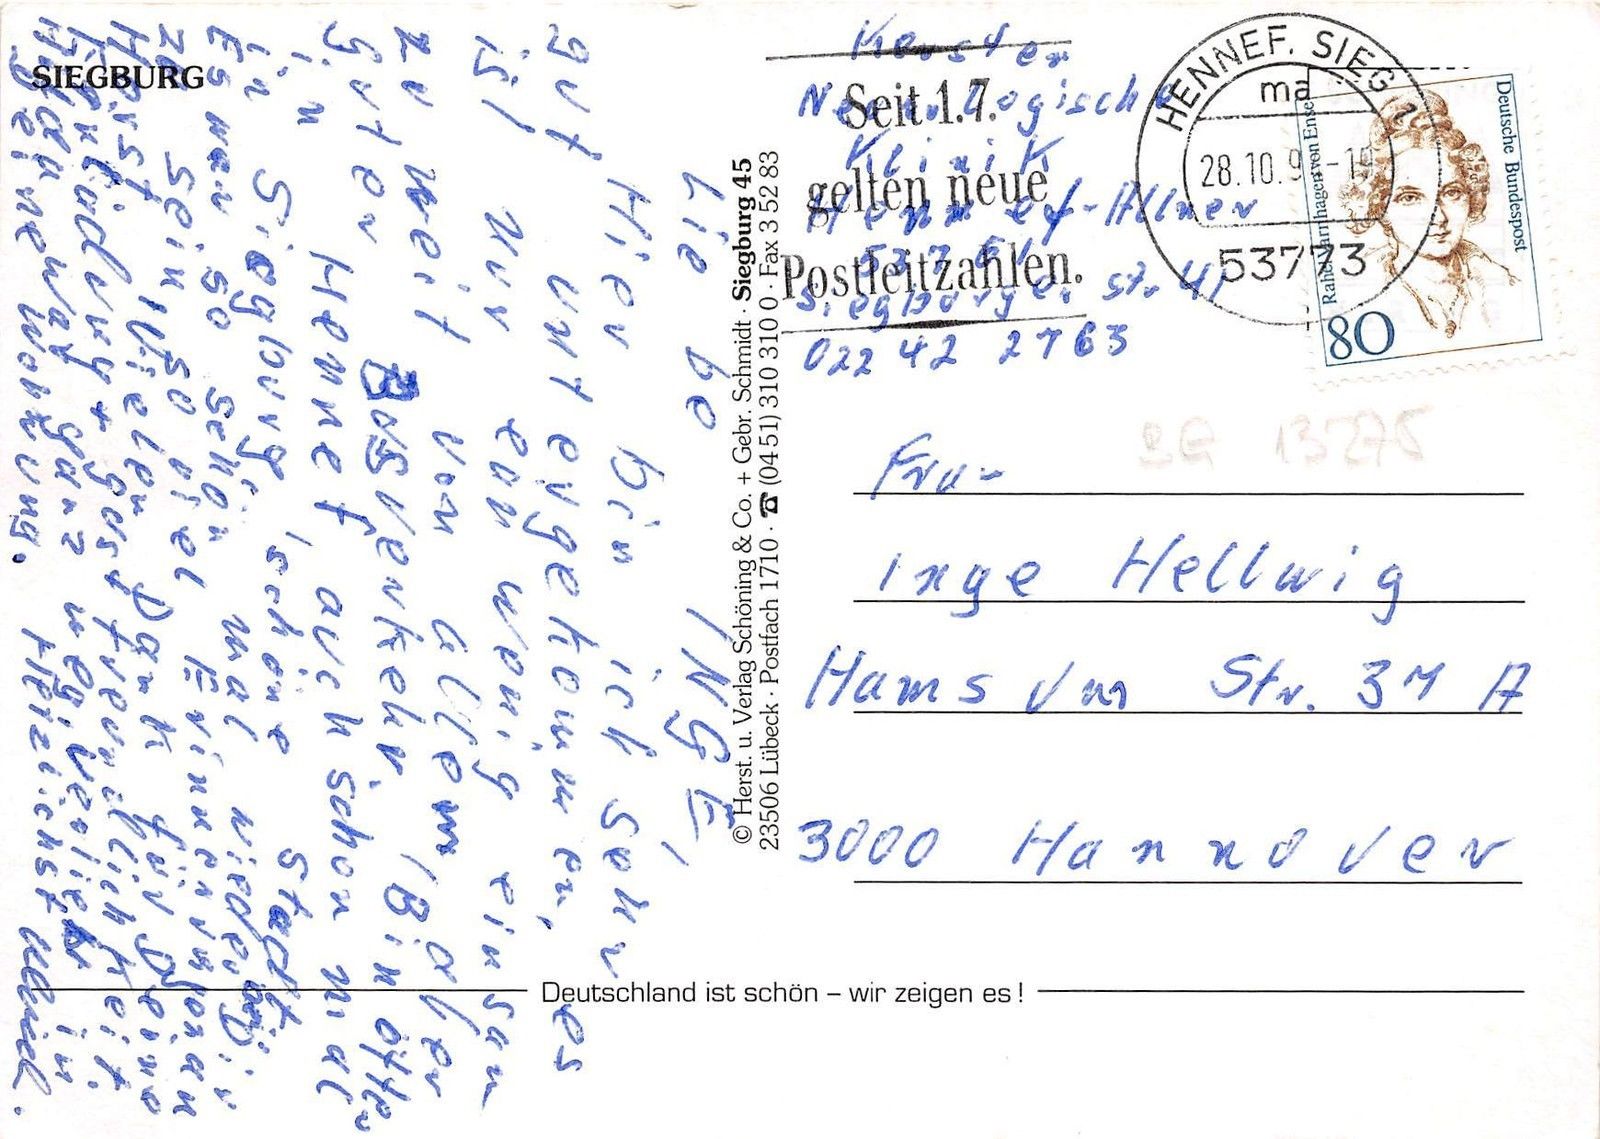 SIEGBURG
Liebe INGE,
Hier bin ich sehr
gut untergekommen, es
ist nur ein wenig einsam
zu weit von allem, aber
guter Busverkehr. Bin öfter
in Hennef auch schon mal
in Siegburg, schöne Stadt.
Es war so schön mal wieder in
zu sein, so viel Erinnerungen an
Horst, Vielen Dank für Deine
Einladung + Gastfreundlichkeit.
Bin ganz in
Wohnung. Herzlichst
© Herst. u. Verlag Schöning & Co. + Gebr. Schmidt · Siegburg 45
23506 Lübeck · Postfach 1710 · ☎ (04 51) 310 310 0 · Fax 3 52 83
Kersten
Neurologische
Klinik
Hennef-Allner
Siegburger Str. 41
02242 2763
Seit 1.7.
gelten neue
Postleitzahlen.
HENNEF. SIEG 1
ma
28.10.9 -19
53773
Deutsche Bundespost
Rahel Varnhagen von Ense
80
Frau
Inge Hellwig
Str. 31 A
3000 Hannover
Deutschland ist schön – wir zeigen es !